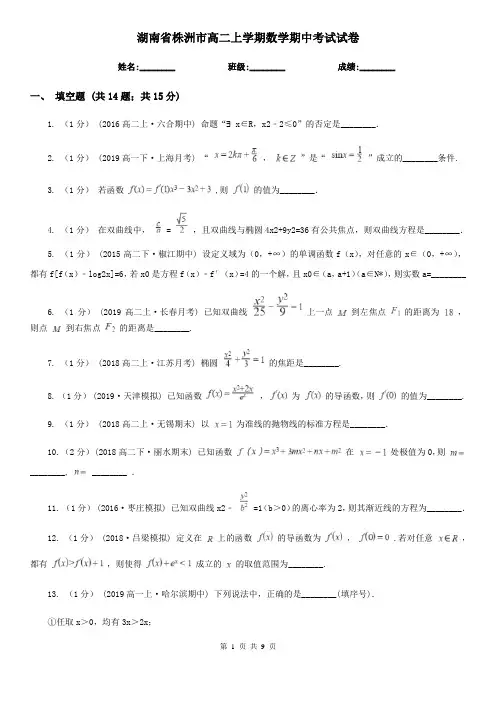 湖南省株洲市高二上学期数学期中考试试卷
姓名:________ 班级:________ 成绩:________
一、 填空题 (共14题；共15分)
1. (1分) (2016高二上·六合期中) 命题“∃ x∈R，x2﹣2≤0”的否定是________．
2. (1分) (2019高一下·上海月考) “ x=2kπ+π/6 ， k∈Z ”是“ sinx=1/2 ”成立的________条件.
3. (1分) 若函数 f(x)=f′(1)x³-3x²+3 ,则 f′(1) 的值为________．
4. (1分) 在双曲线中， c/a = √5/2 ，且双曲线与椭圆4x2+9y2=36有公共焦点，则双曲线方程是________．
5. (1分) (2015高二下·椒江期中) 设定义域为（0，+∞）的单调函数f（x），对任意的x∈（0，+∞），
都有f[f（x）﹣log2x]=6，若x0是方程f（x）﹣f′（x）=4的一个解，且x0∈（a，a+1）（a∈N*），则实数a=________
6. (1分) (2019高二上·长春月考) 已知双曲线 x²/25-y²/9=1 上一点 M 到左焦点 F₁ 的距离为 18 ，
则点 M 到右焦点 F₂ 的距离是________.
7. (1分) (2018高二上·江苏月考) 椭圆 x²/4+y²/3=1 的焦距是________.
8. (1分) (2019·天津模拟) 已知函数 f(x)=(x²+2x)/eˣ ， f′(x) 为 f(x) 的导函数，则 f′(0) 的值为________.
9. (1分) (2018高二上·无锡期末) 以 x=1 为准线的抛物线的标准方程是________.
10. (2分) (2018高二下·丽水期末) 已知函数 f(x)=x³+3mx²+nx+m² 在 x=-1 处极值为0,则 m=
________. n= ________ .
11. (1分) (2016·枣庄模拟) 已知双曲线x2﹣ y²/b² =1(b＞0)的离心率为2，则其渐近线的方程为________．
12. (1分) (2018·吕梁模拟) 定义在 R 上的函数 f(x) 的导函数为 f′(x) ， f(0)=0 .若对任意 x∈R ，
都有 f(x)>f′(x)+1 ，则使得 f(x)+eˣ<1 成立的 x 的取值范围为________.
13. (1分) (2019高一上·哈尔滨期中) 下列说法中，正确的是________(填序号).
①任取x＞0，均有3x＞2x；
第 1 页 共 9 页